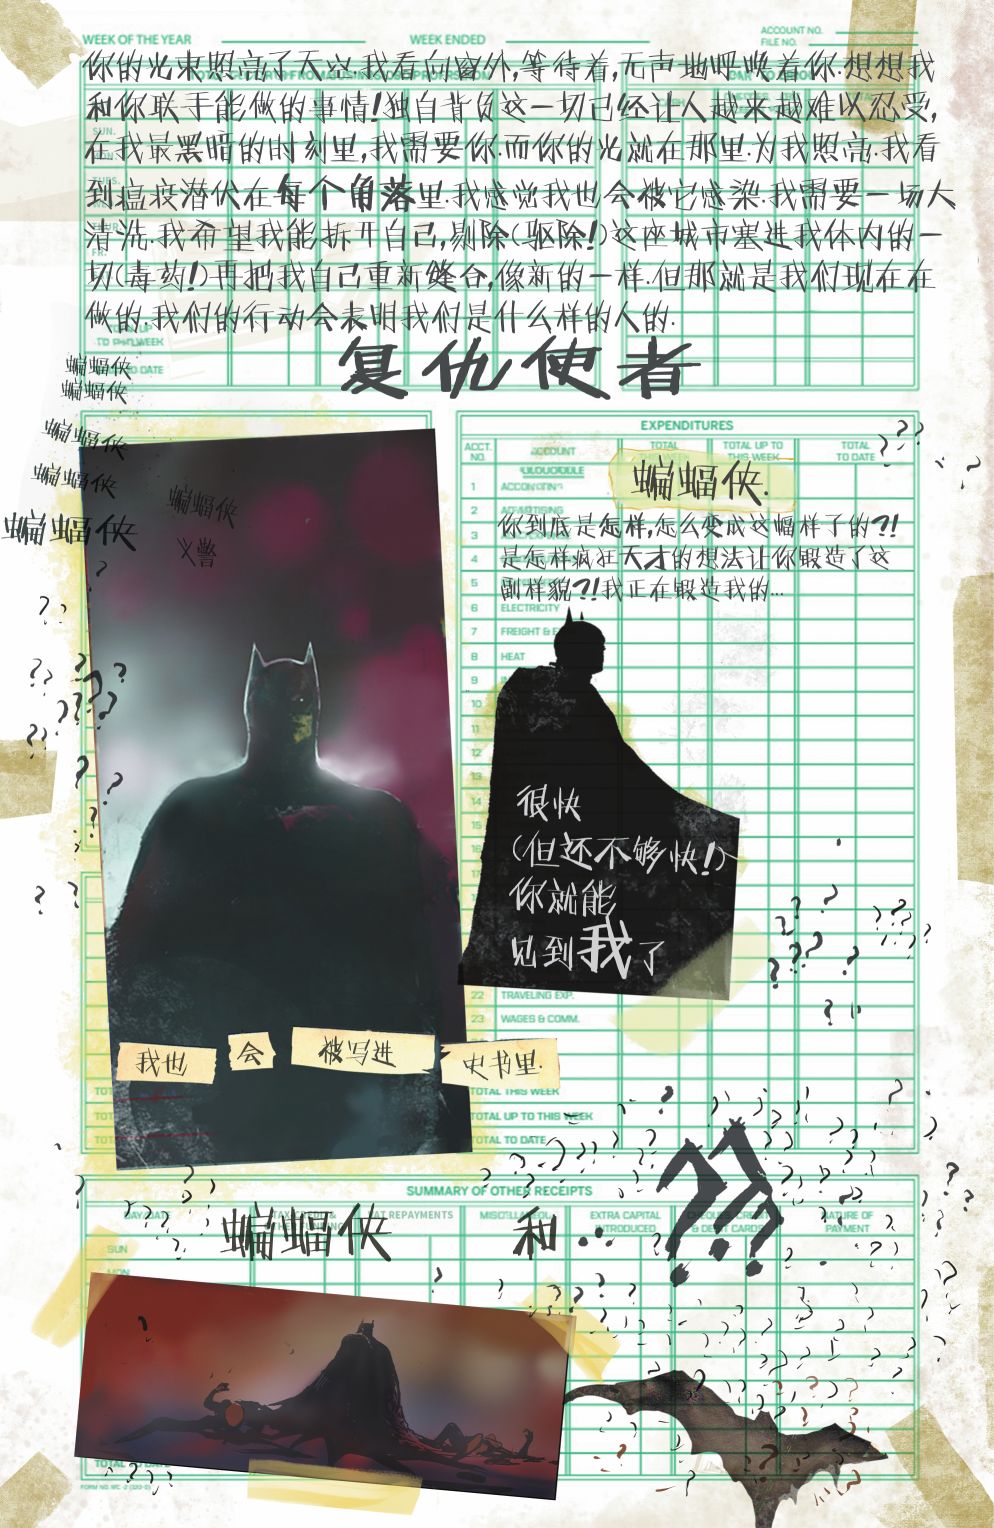 WEEK OF THE YEAR
WEEK ENDED
ACCOUNT NO.
FILE NO.
你的光束照亮了天空.我看向窗外,等待着,无声地呼唤着你.想想我
和你联手能做的事情!独自背负这一切已经让人越来越难以忍受,
在我最黑暗的时刻里,我需要你.而你的光就在那里.为我照亮.我看
到瘟疫潜伏在每个角落里.我感觉我也会被它感染.我需要一场大
清洗.我希望我能拆开自己,剔除(驱除!)这座城市塞进我体内的一
切(毒药!)再把我自己重新缝合,像新的一样.但那就是我们现在在
做的.我们的行动会表明我们是什么样的人的.
复仇使者
蝙蝠侠
蝙蝠侠
蝙蝠侠
蝙蝠侠
蝙蝠侠
蝙蝠侠
义警
EXPENDITURES
ACCT. NO.
ACCOUNT
TOTAL THIS WEEK
TOTAL UP TO THIS WEEK
TOTAL TO DATE
蝙蝠侠.
你到底是怎样,怎么变成这幅样子的?!
是怎样疯狂天才的想法让你锻造了这
副样貌?!我正在锻造我的...
1
2
3
4
5
6 ELECTRICITY
7 FREIGHT & E
8 HEAT
9
10
11
12
13
14
15
16
很快
(但还不够快!)
你就能
见到我了
22 TRAVELING EXP.
23 WAGES & COMM.
我也
会
被写进
史书里.
TOTAL THIS WEEK
TOTAL UP TO THIS WEEK
TOTAL TO DATE
SUMMARY OF OTHER RECEIPTS
EXTRA CAPITAL INTRODUCED
NATURE OF PAYMENT
蝙蝠侠 和...??
SUN